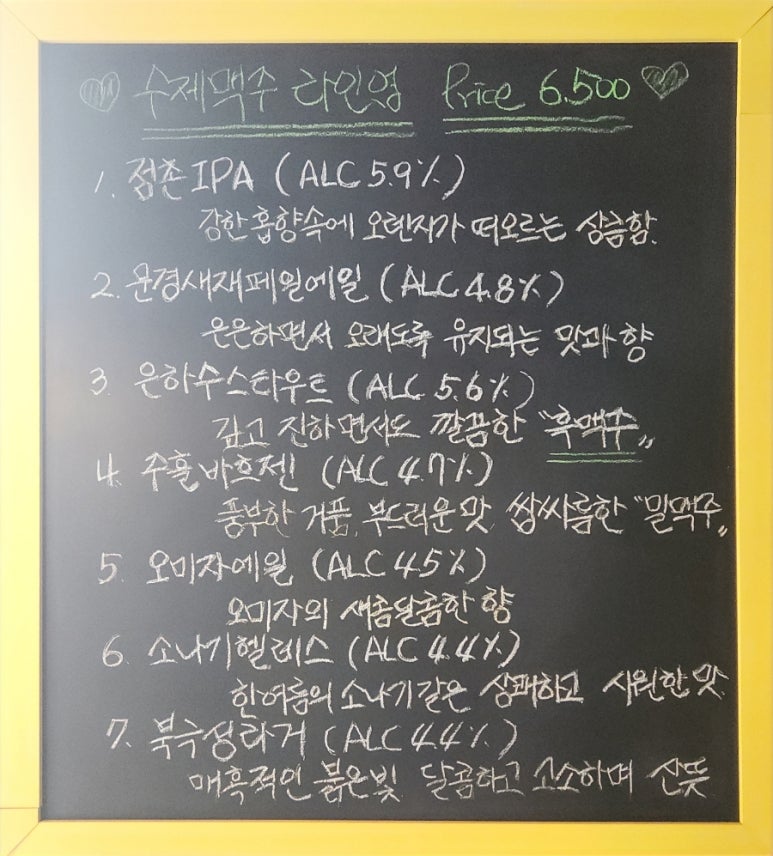 수제맥주 라인업 Price 6.500
1. 점촌 IPA (ALC 5.9%)
강한 홉향속에 오렌지가 떠오르는 상큼함.
2. 문경새재페일에일 (ALC 4.8%)
은은하면서 오래도록 유지되는 맛과 향
3. 은하수스타우트 (ALC 5.6%)
깊고 진하면서도 깔끔한 "흑맥주"
4. 주흘바흐젠 (ALC 4.7%)
풍부한 거품, 부드러운 맛, 쌉싸름한 "밀맥주"
5. 오미자에일 (ALC 4.5%)
오미자의 새콤달콤한 향
6. 소나기헬레스 (ALC 4.4%)
한여름의 소나기같은 상쾌하고 시원한 맛
7. 북극성라거 (ALC 4.4%)
매혹적인 붉은빛 달콤하고 고소하며 산뜻